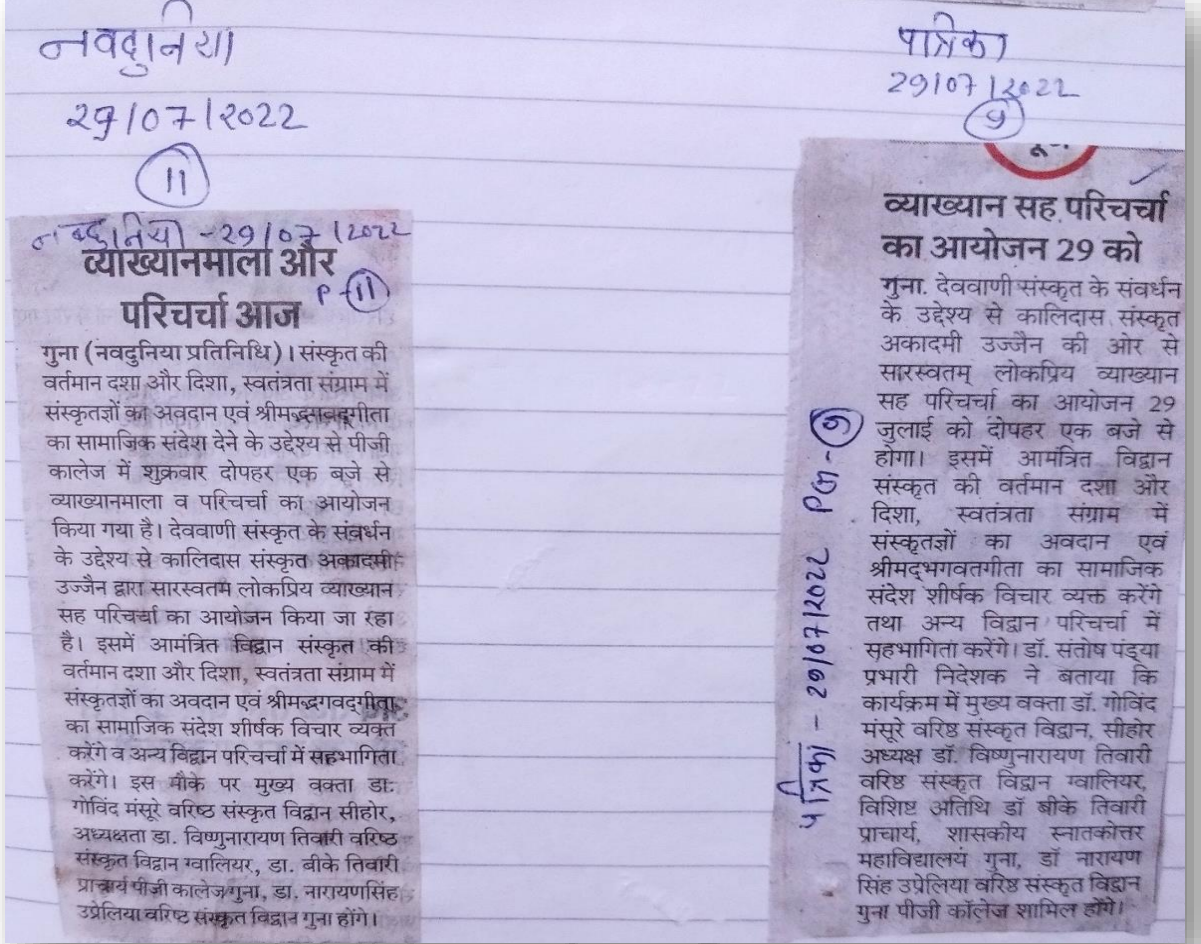 नवदुनिया
29/07/2022
11
नवदुनिया - 29/07/2022
व्याख्यानमाला और
P-11
परिचर्चा आज
गुना (नवदुनिया प्रतिनिधि)। संस्कृत की
वर्तमान दशा और दिशा, स्वतंत्रता संग्राम में
संस्कृतज्ञों का अवदान एवं श्रीमद्भगवद्गीता
का सामाजिक संदेश देने के उद्देश्य से पीजी
कालेज में शुक्रवार दोपहर एक बजे से
व्याख्यानमाला व परिचर्चा का आयोजन
किया गया है। देववाणी संस्कृत के संवर्धन
के उद्देश्य से कालिदास संस्कृत अकादमी
उज्जैन द्वारा सारस्वतम लोकप्रिय व्याख्यान
सह परिचर्चा का आयोजन किया जा रहा
है। इसमें आमंत्रित विद्वान संस्कृत की
वर्तमान दशा और दिशा, स्वतंत्रता संग्राम में
संस्कृतज्ञों का अवदान एवं श्रीमद्भगवद्गीता
का सामाजिक संदेश शीर्षक विचार व्यक्त
करेंगे व अन्य विद्वान परिचर्चा में सहभागिता
करेंगे। इस मौके पर मुख्य वक्ता डा.
गोविंद मंसूरे वरिष्ठ संस्कृत विद्वान सीहोर,
अध्यक्षता डा. विष्णुनारायण तिवारी वरिष्ठ
संस्कृत विद्वान ग्वालियर, डा. बीके तिवारी
प्राचार्य पीजी कालेज गुना, डा. नारायणसिंह
उप्रेलिया वरिष्ठ संस्कृत विद्वान गुना होंगे।
पत्रिका
29/07/2022
9
व्याख्यान सह परिचर्चा
का आयोजन 29 को
गुना. देववाणी संस्कृत के संवर्धन
के उद्देश्य से कालिदास संस्कृत
अकादमी उज्जैन की ओर से
सारस्वतम् लोकप्रिय व्याख्यान
सह परिचर्चा का आयोजन 29
जुलाई को दोपहर एक बजे से
होगा। इसमें आमंत्रित विद्वान
संस्कृत की वर्तमान दशा और
दिशा, स्वतंत्रता संग्राम में
संस्कृतज्ञों का अवदान एवं
श्रीमद्भगवतगीता का सामाजिक
संदेश शीर्षक विचार व्यक्त करेंगे
तथा अन्य विद्वान परिचर्चा में
सहभागिता करेंगे। डॉ. संतोष पंड्या
प्रभारी निदेशक ने बताया कि
कार्यक्रम में मुख्य वक्ता डॉ. गोविंद
मंसूरे वरिष्ठ संस्कृत विद्वान, सीहोर
अध्यक्ष डॉ. विष्णुनारायण तिवारी
वरिष्ठ संस्कृत विद्वान ग्वालियर,
विशिष्ट अतिथि डॉ बीके तिवारी
प्राचार्य, शासकीय स्नातकोत्तर
महाविद्यालय गुना, डॉ नारायण
सिंह उप्रेलिया वरिष्ठ संस्कृत विद्वान
गुना पीजी कॉलेज शामिल होंगे।
पत्रिका - 29/07/2022